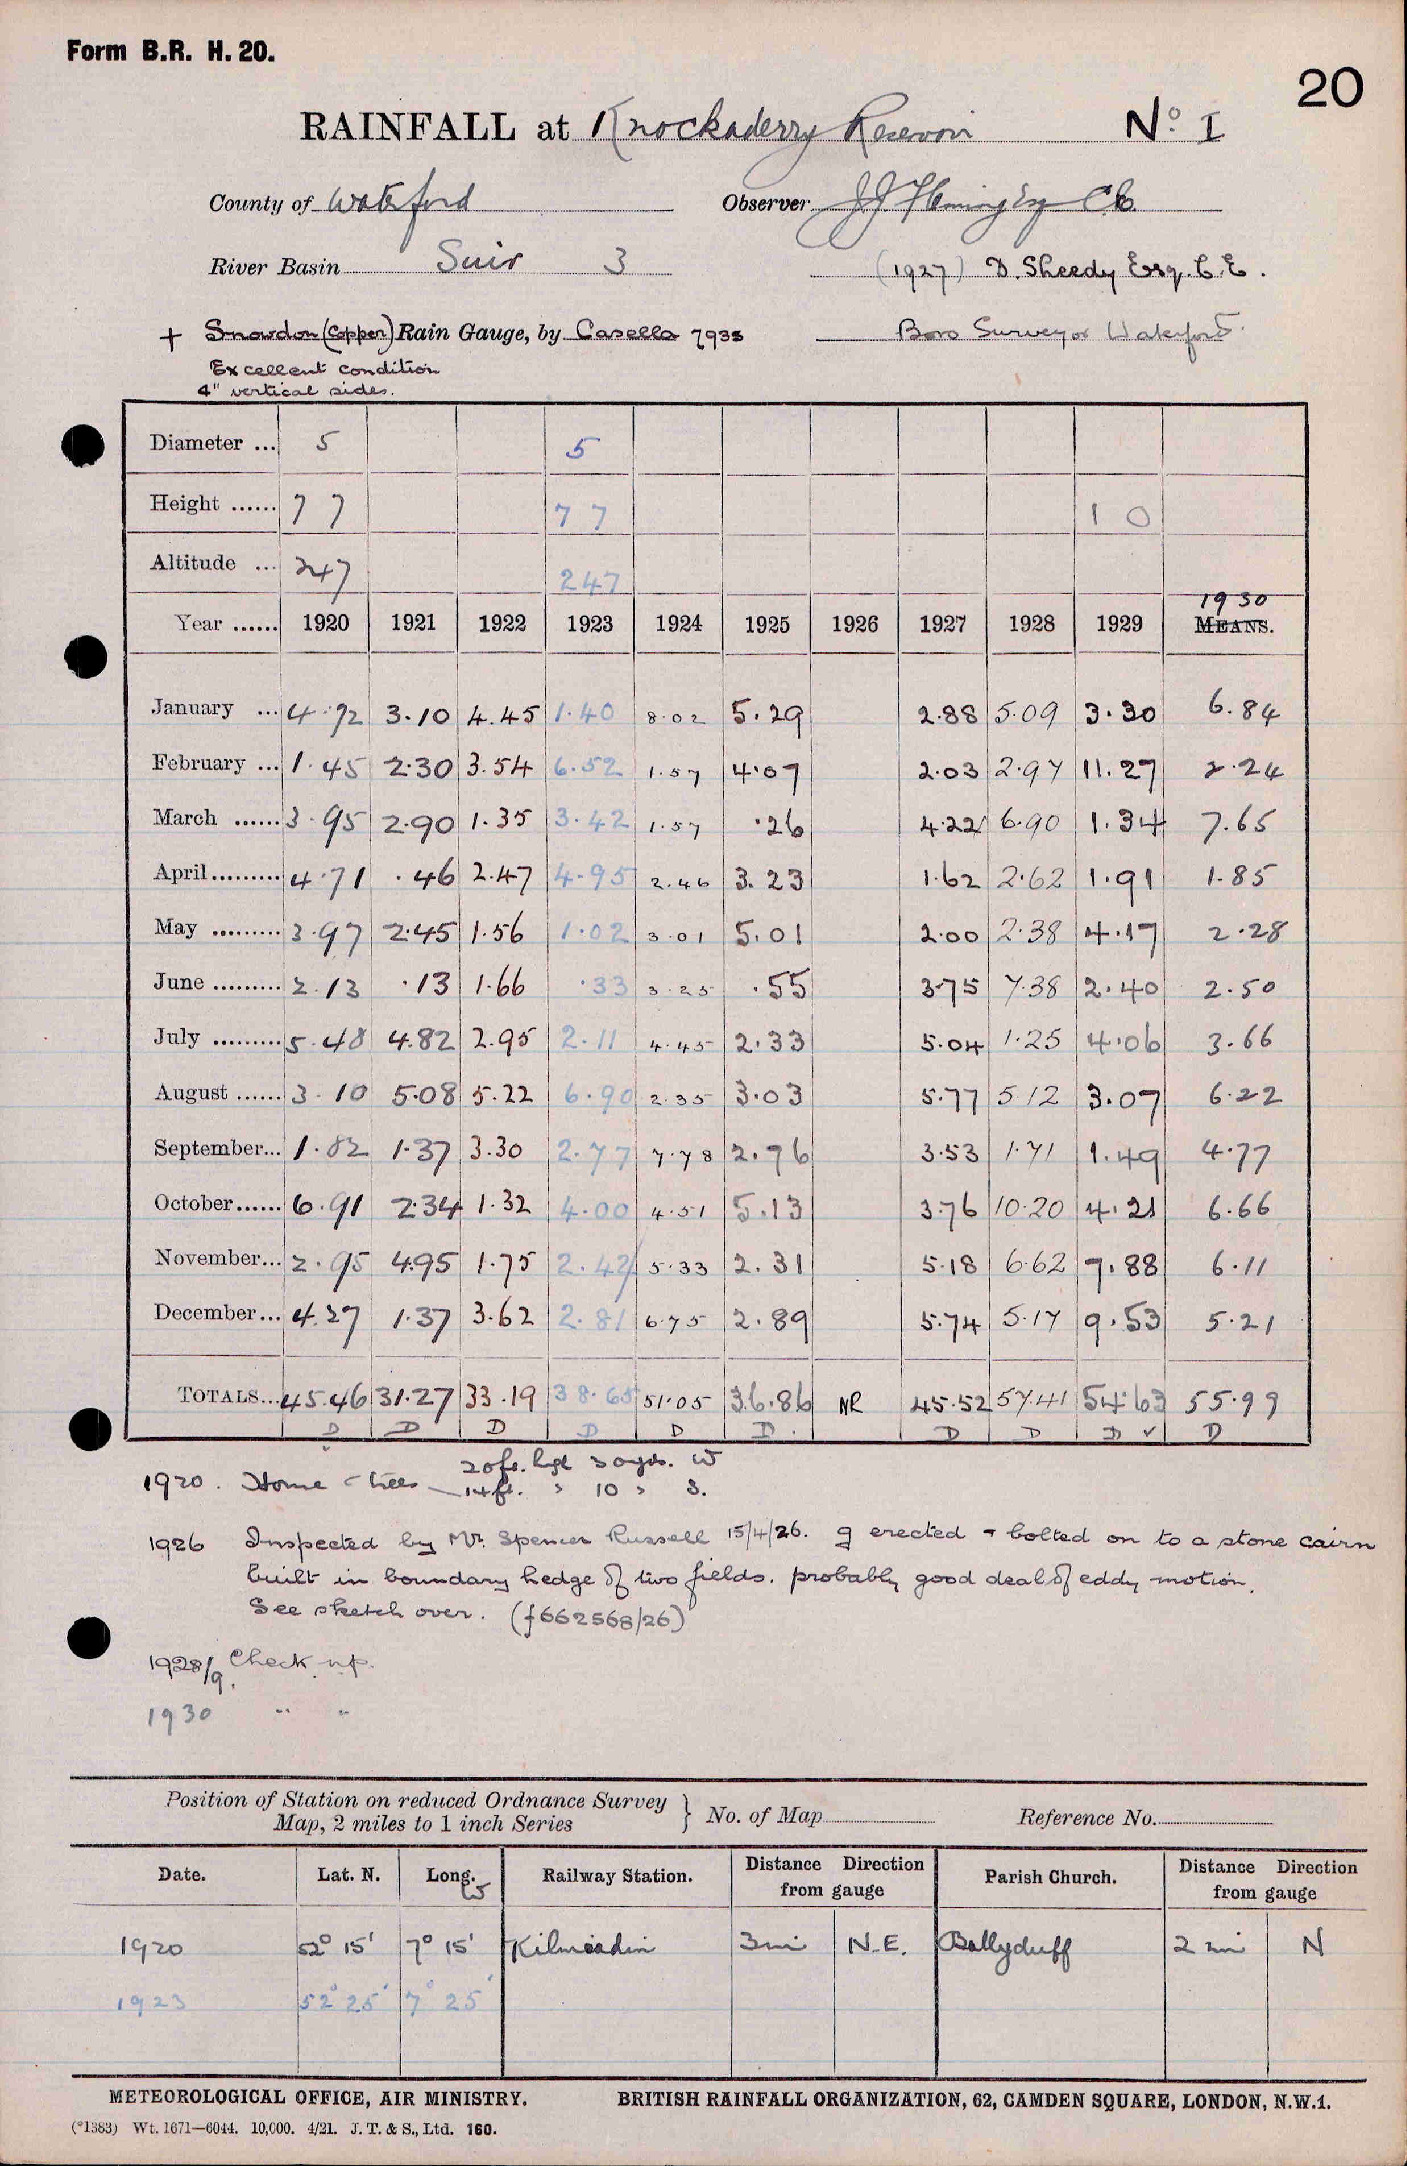 Form B.R. H. 20.
20
RAINFALL at Knockaderry Reservoir No. I
County of Waterford Observer J J Fleming Esq CE
River Basin Suir 3 (1927) D. Sheedy Esq. C.E.
+ Snowdon (Copper) Rain Gauge, by Casella 7935 Boro Surveyor Waterford.
Excellent condition
4" vertical sides.
Diameter ... 5 5
Height ...... 7 7 7 7 1 0
Altitude ... 247 247
Year ...... 1920 1921 1922 1923 1924 1925 1926 1927 1928 1929 1930 MEANS.
January ... 4.72 3.10 4.45 1.40 8.02 5.29 2.88 5.09 3.30 6.84
February ... 1.45 2.30 3.54 6.52 1.57 4.07 2.03 2.97 11.27 2.24
March ...... 3.95 2.90 1.35 3.42 1.57 .26 4.22 6.90 1.34 7.65
April ......... 4.71 .46 2.47 4.95 2.46 3.23 1.62 2.62 1.91 1.85
May ......... 3.97 2.45 1.56 1.02 3.01 5.01 2.00 2.38 4.17 2.28
June ......... 2.13 .13 1.66 .33 3.25 .55 3.75 7.38 2.40 2.50
July ......... 5.48 4.82 2.95 2.11 4.45 2.33 5.04 1.25 4.06 3.66
August ...... 3.10 5.08 5.22 6.90 2.35 3.03 5.77 5.12 3.07 6.22
September... 1.82 1.37 3.30 2.77 7.78 2.76 3.53 1.71 1.49 4.77
October...... 6.91 2.34 1.32 4.00 4.51 5.13 3.76 10.20 4.21 6.66
November... 2.95 4.95 1.75 2.42 5.33 2.31 5.18 6.62 7.88 6.11
December... 4.27 1.37 3.62 2.81 6.75 2.89 5.74 5.17 9.53 5.21
TOTALS... 45.46 31.27 33.19 38.65 51.05 36.86 NR 45.52 57.41 54.63 55.99
D D D D D D D D D ✓ D
1920. Home - trees 20ft. hgt 30yds. W
14ft. " 10 " S.
1926 Inspected by Mr. Spencer Russell 15/4/26. g erected & bolted on to a stone cairn
built in boundary hedge of two fields. probably good deal of eddy motion.
See sketch over. (f662568/26)
1928/9. Check up.
1930 " "
Position of Station on reduced Ordnance Survey
Map, 2 miles to 1 inch Series } No. of Map Reference No.
Date. Lat. N. Long. W Railway Station. Distance Direction from gauge Parish Church. Distance Direction from gauge
1920 52° 15' 7° 15' Kilmeadin 3mi N.E. Ballyduff 2 mi N
1923 52° 25' 7° 25'
METEOROLOGICAL OFFICE, AIR MINISTRY. BRITISH RAINFALL ORGANIZATION, 62, CAMDEN SQUARE, LONDON, N.W.1.
(*1383) Wt. 1671—6044. 10,000. 4/21. J. T. & S., Ltd. 160.